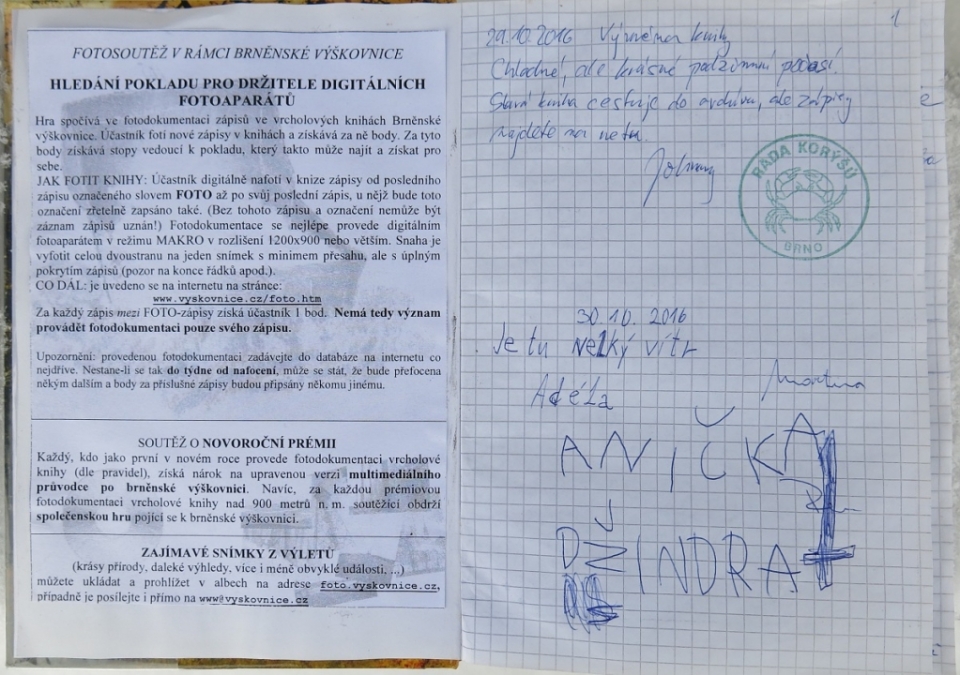 FOTOSOUTĚŽ V RÁMCI BRNĚNSKÉ VÝŠKOVNICE
HLEDÁNÍ POKLADU PRO DRŽITELE DIGITÁLNÍCH
FOTOAPARÁTŮ
Hra spočívá ve fotodokumentaci zápisů ve vrcholových knihách Brněnské
výškovnice. Účastník fotí nové zápisy v knihách a získává za ně body. Za tyto
body získává stopy vedoucí k pokladu, který takto může najít a získat pro
sebe.
JAK FOTIT KNIHY: Účastník digitálně nafotí v knize zápisy od posledního
zápisu označeného slovem FOTO až po svůj poslední zápis, u nějž bude toto
označení zřetelně zapsáno také. (Bez tohoto zápisu a označení nemůže být
záznam zápisů uznán!) Fotodokumentace se nejlépe provede digitálním
fotoaparátem v režimu MAKRO v rozlišení 1200x900 nebo větším. Snaha je
vyfotit celou dvoustranu na jeden snímek s minimem přesahu, ale s úplným
pokrytím zápisů (pozor na konce řádků apod.).
CO DÁL: je uvedeno se na internetu na stránce:
www.vyskovnice.cz/foto.htm
Za každý zápis mezi FOTO-zápisy získá účastník 1 bod. Nemá tedy význam
provádět fotodokumentaci pouze svého zápisu.
Upozornění: provedenou fotodokumentaci zadávejte do databáze na internetu co
nejdříve. Nestane-li se tak do týdne od nafocení, může se stát, že bude přefocena
někým dalším a body za příslušné zápisy budou připsány někomu jinému.
SOUTĚŽ O NOVOROČNÍ PRÉMII
Každý, kdo jako první v novém roce provede fotodokumentaci vrcholové
knihy (dle pravidel), získá nárok na upravenou verzi multimediálního
průvodce po brněnské výškovnici. Navíc, za každou prémiovou
fotodokumentaci vrcholové knihy nad 900 metrů n. m. soutěžící obdrží
společenskou hru pojící se k brněnské výškovnici.
ZAJÍMAVÉ SNÍMKY Z VÝLETŮ
(krásy přírody, daleké výhledy, více i méně obvyklé události, ...)
můžete ukládat a prohlížet v albech na adrese foto.vyskovnice.cz,
případně je posílejte i přímo na www@vyskovnice.cz
1
29.10.2016 Výměna knihy
Chladné, ale krásné podzimní počasí.
Stará kniha cestuje do archivu, ale zápisy
najdete na netu.
RADA KORÝŠŮ
BRNO
30.10. 2016
Je tu velký vítr
Adéla
Martina
ANIČKA
DŽINDRA